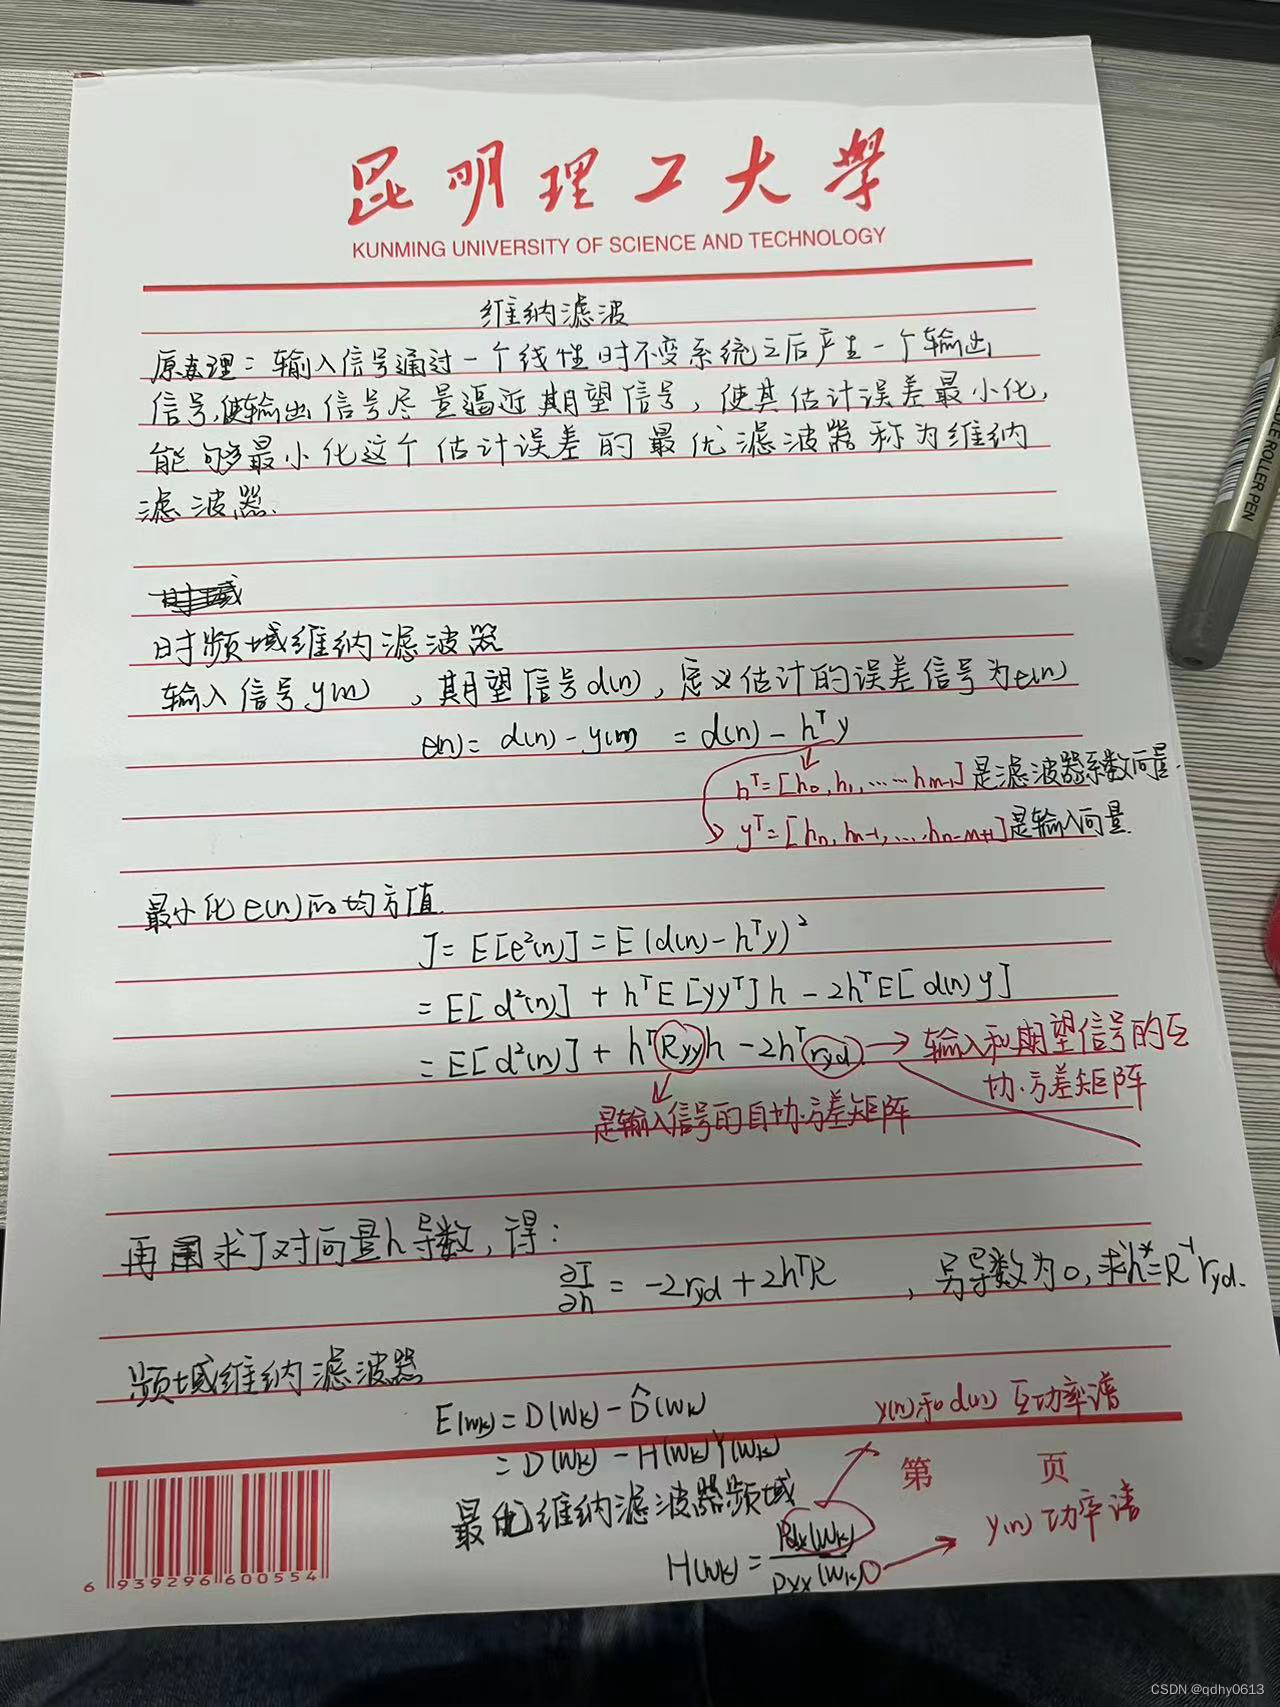 昆明理工大學
KUNMING UNIVERSITY OF SCIENCE AND TECHNOLOGY
维纳滤波
原理：输入信号通过一个线性时不变系统之后产生一个输出
信号，使输出信号尽量逼近期望信号，使其估计误差最小化，
能够最小化这个估计误差的最优滤波器称为维纳
滤波器.
时频域维纳滤波器
输入信号y(m) ，期望信号d(n)，定义估计的误差信号为e(n)
e(n)= d(n) - y(m) = d(n) - hᵀy
hᵀ=[h₀, h₁, ...... hm-1] 是滤波器系数向量.
yᵀ=[hn, hn-1, ..., hn-m+1] 是输入向量.
最小化e(n)的均方值.
J = E[e²(n)] = E(d(n) - hᵀy)²
= E[d²(n)] + hᵀE[yyᵀ]h - 2hᵀE[d(n)y]
= E[d²(n)] + hᵀRyyh - 2hᵀryd → 输入和期望信号的互
协方差矩阵
是输入信号的自协方差矩阵
再求J对向量h导数，得：
∂J/∂h = -2ryd + 2hᵀR ，另导数为0，求h*=R⁻¹ryd.
频域维纳滤波器
E(wk) = D(wk) - D̂(wk)
y(n)和d(n)互功率谱
= D(wk) - H(wk)Y(wk)
第 页
最优维纳滤波器频域
y(n)功率谱
H(wk) = Pdx(wk)/Pxx(wk)
6 939296 600554
LE ROLLER PEN
CSDN @qdhy0613